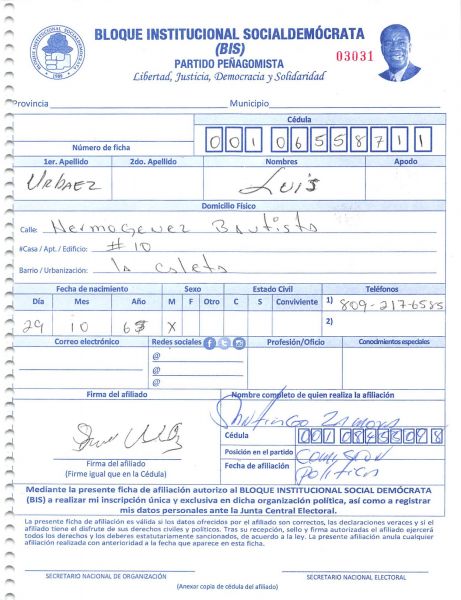 BLOQUE INSTITUCIONAL SOCIALDEMÓCRATA
(BIS)
PARTIDO PEÑAGOMISTA
Libertad, Justicia, Democracia y Solidaridad
03031
Provincia Municipio
Número de ficha
Cédula
001 0655871 1
1er. Apellido 2do. Apellido Nombres Apodo
Urbaez Luis
Domicilio Físico
Calle: Hermogenez Bautista
#Casa / Apt. / Edificio: #10
Barrio / Urbanización: la caleta
Fecha de nacimiento Sexo Estado Civil Teléfonos
Día Mes Año M F Otro C S Conviviente 1) 809-217-6585
29 10 X 2)
Correo electrónico Redes sociales Profesión/Oficio Conocimientos especiales
@
@
@
Firma del afiliado Nombre completo de quien realiza la afiliación
Santiago Zamora
Cédula
Posición en el partido Comision
Fecha de afiliación Politica
Firma del afiliado
(Firme igual que en la Cédula)
Mediante la presente ficha de afiliación autorizo al BLOQUE INSTITUCIONAL SOCIAL DEMÓCRATA
(BIS) a realizar mi inscripción única y exclusiva en dicha organización política, así como a registrar
mis datos personales ante la Junta Central Electoral.
La presente ficha de afiliación es válida si los datos ofrecidos por el afiliado son correctos, las declaraciones veraces y si el
afiliado tiene el disfrute de sus derechos civiles y políticos. Tras su recepción, sello y firma autorizadas el afiliado ejercerá
todos los derechos y los deberes estatutariamente sancionados, de acuerdo a la ley. La presente afiliación anula cualquier
afiliación realizada con anterioridad a la fecha que aparece en esta ficha.
SECRETARIO NACIONAL DE ORGANIZACIÓN SECRETARIO NACIONAL ELECTORAL
(Anexar copia de cédula del afiliado)